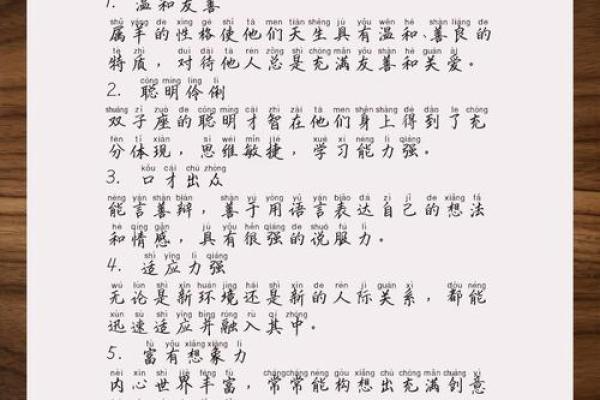 1. 温和友善
shǔ yáng de xìng gé shǐ tā men tiān shēng jù yǒu wēn hé shàn liáng de
属羊的性格使他们天生具有温和、善良的
tè zhì duì dài tā rén zǒng shì chōng mǎn yǒu shàn hé guān ài
特质，对待他人总是充满友善和关爱。
cōng míng líng lì
2. 聪明伶俐
shuāng zǐ zuò de cōng míng cái zhì zài tā men shēn shàng dé dào le chōng
双子座的聪明才智在他们身上得到了充
fēn tǐ xiàn sī wéi mǐn jié xué xí néng lì qiáng
分体现，思维敏捷，学习能力强。
kǒu cái chū zhòng
3. 口才出众
néng yán shàn biàn shàn yú yòng yǔ yán biǎo dá zì jǐ de xiǎng fǎ
能言善辩，善于用语言表达自己的想法
hé qíng gǎn jù yǒu hěn qiáng de shuō fú lì
和情感，具有很强的说服力。
shì yìng lì qiáng
4. 适应力强
wú lùn shì xīn huán jìng hái shì xīn de rén jì guān xì dōu néng
无论是新环境还是新的人际关系，都能
xùn sù shì yìng bìng róng rù qí zhōng
迅速适应并融入其中。
fù yǒu xiǎng xiàng lì
5. 富有想象力
nèi xīn shì jiè fēng fù cháng cháng néng gòu xiǎng chū chōng mǎn chuàng yì
内心世界丰富，常常能构想出充满创意